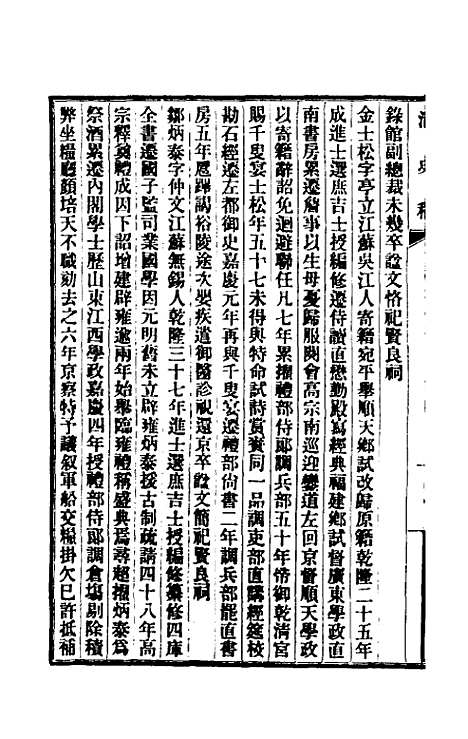 清史稿
錄館副總裁未幾卒諡文恪祀賢良祠
金士松字亭立江蘇吳江人寄籍宛平舉順天鄉試改歸原籍乾隆二十五年
成進士選庶吉士授編修遷侍讀直懋勤殿寫經典福建鄉試督廣東學政直
南書房累遷詹事以生母憂歸服闋會高宗南巡迎鑾道左回京督順天學政
以寄籍辭詔免迴避聯任凡七年累擢禮部侍郎調兵部五十年帝御乾清宮
賜千叟宴士松年五十七未得與特命試詩賞賚同一品調吏部直講經筵校
勘石經遷左都御史嘉慶元年再與千叟宴遷禮部尚書二年調兵部罷直書
房五年扈蹕謁裕陵途次嬰疾遣御醫診視還京卒諡文簡祀賢良祠
鄒炳泰字仲文江蘇無錫人乾隆三十七年進士選庶吉士授編修纂修四庫
全書遷國子監司業國學因元明舊未立辟雍炳泰援古制疏請四十八年高
宗釋奠禮成因下詔增建辟雍逾兩年始舉臨雍禮稱盛典焉尋超擢炳泰爲
祭酒累遷內閣學士歷山東江西學政嘉慶四年授禮部侍郎調倉場剔除積
弊坐糧廳顏培天不職劾去之六年京察特予議敘軍船交糧掛欠已許抵補